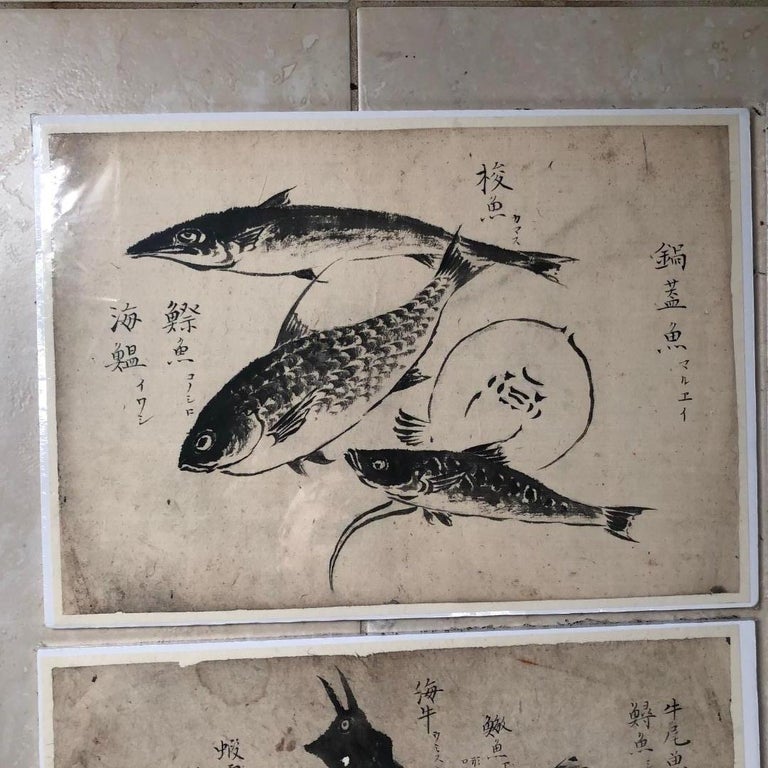 鍋蓋魚 マルエイ
梭魚 カマス
鰶魚 コノシロ
海鰮 イワシ
牛尾魚
鱘魚
海牛 ウミス